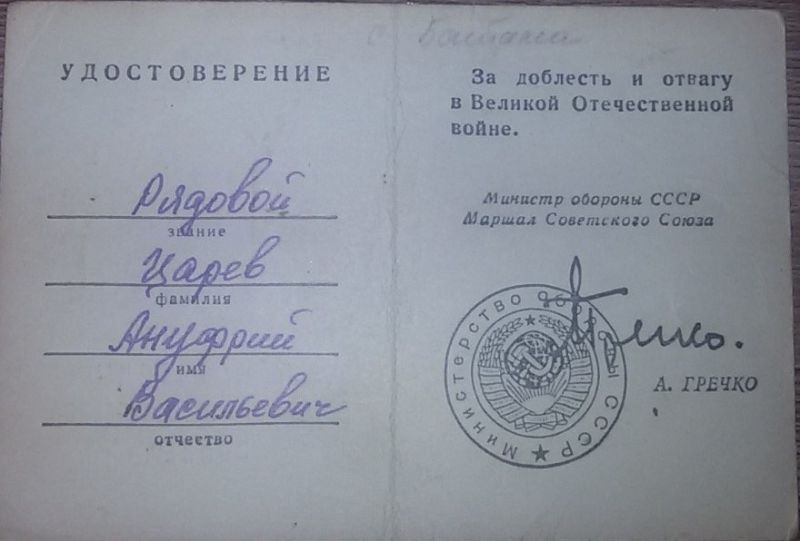 УДОСТОВЕРЕНИЕ
Рядовой
звание
Царев
фамилия
Ануфрий
имя
Васильевич
отчество
За доблесть и отвагу
в Великой Отечественной
войне.
Министр обороны СССР
Маршал Советского Союза
Министерство обороны СССР
А. ГРЕЧКО